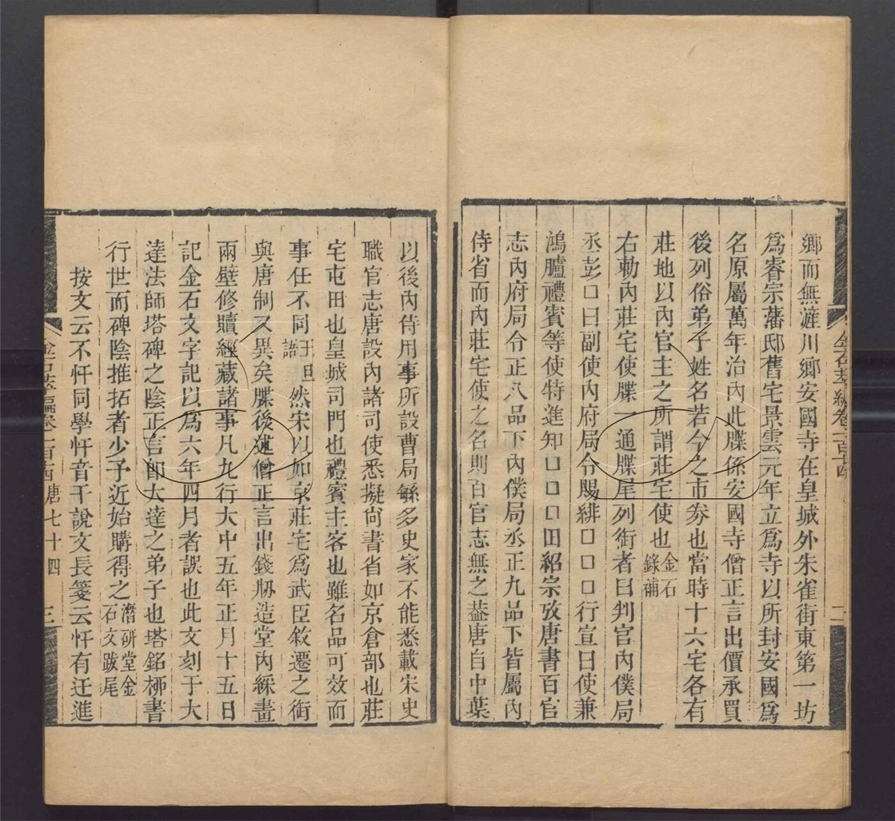 鄉而無滻川鄉安國寺在皇城外朱雀街東第一坊
爲睿宗藩邸舊宅景雲元年立爲寺以所封安國爲
名原屬萬年治內此牒係安國寺僧正言出價承買
後列俗弟子姓名若今之市券也當時十六宅各有
莊地以內官主之所謂莊宅使也金石錄補
右勅內莊宅使牒一通牒尾列銜者曰判官內僕局
丞彭口曰副使內府局令賜緋口口口行宣曰使兼
鴻臚禮賓等使特進知口口口田紹宗攷唐書百官
志內府局令正八品下內僕局丞正九品下皆屬內
侍省而內莊宅使之名則百官志無之葢唐自中葉
金石萃編卷一百十四
二
以後內侍用事所設曹局繇多史家不能悉載宋史
職官志唐設內諸司使悉擬尙書省如京倉部也莊
宅屯田也皇城司門也禮賓主客也雖名品可效而
事任不同語止此然宋以如京莊宅爲武臣敘遷之銜
與唐制又異矣牒後述僧正言出錢剏造堂內綵畫
兩壁修贖經藏諸事凡九行大中五年正月十五日
記金石文字記以爲六年四月者誤也此文刻于大
達法師塔碑之陰正言卽大達之弟子也塔銘栁書
行世而碑陰推拓者少予近始購得之潛研堂金石文跋尾
按文云不忓同學忓音干說文長箋云忓有迀進
金石萃編卷一百十四 唐七十四
三